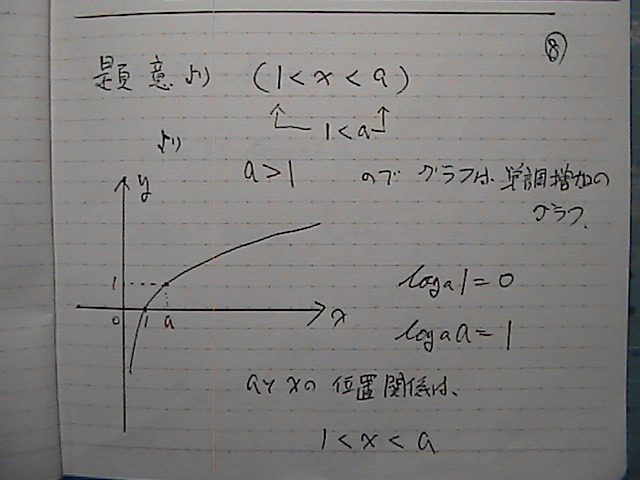 ⑧
題意より (1<x<a)
1<a
より
a>1 のでグラフは、単調増加の
グラフ.
y
1
0 1 a x
logₐ1=0
logₐa=1
aとxの位置関係は、
1<x<a